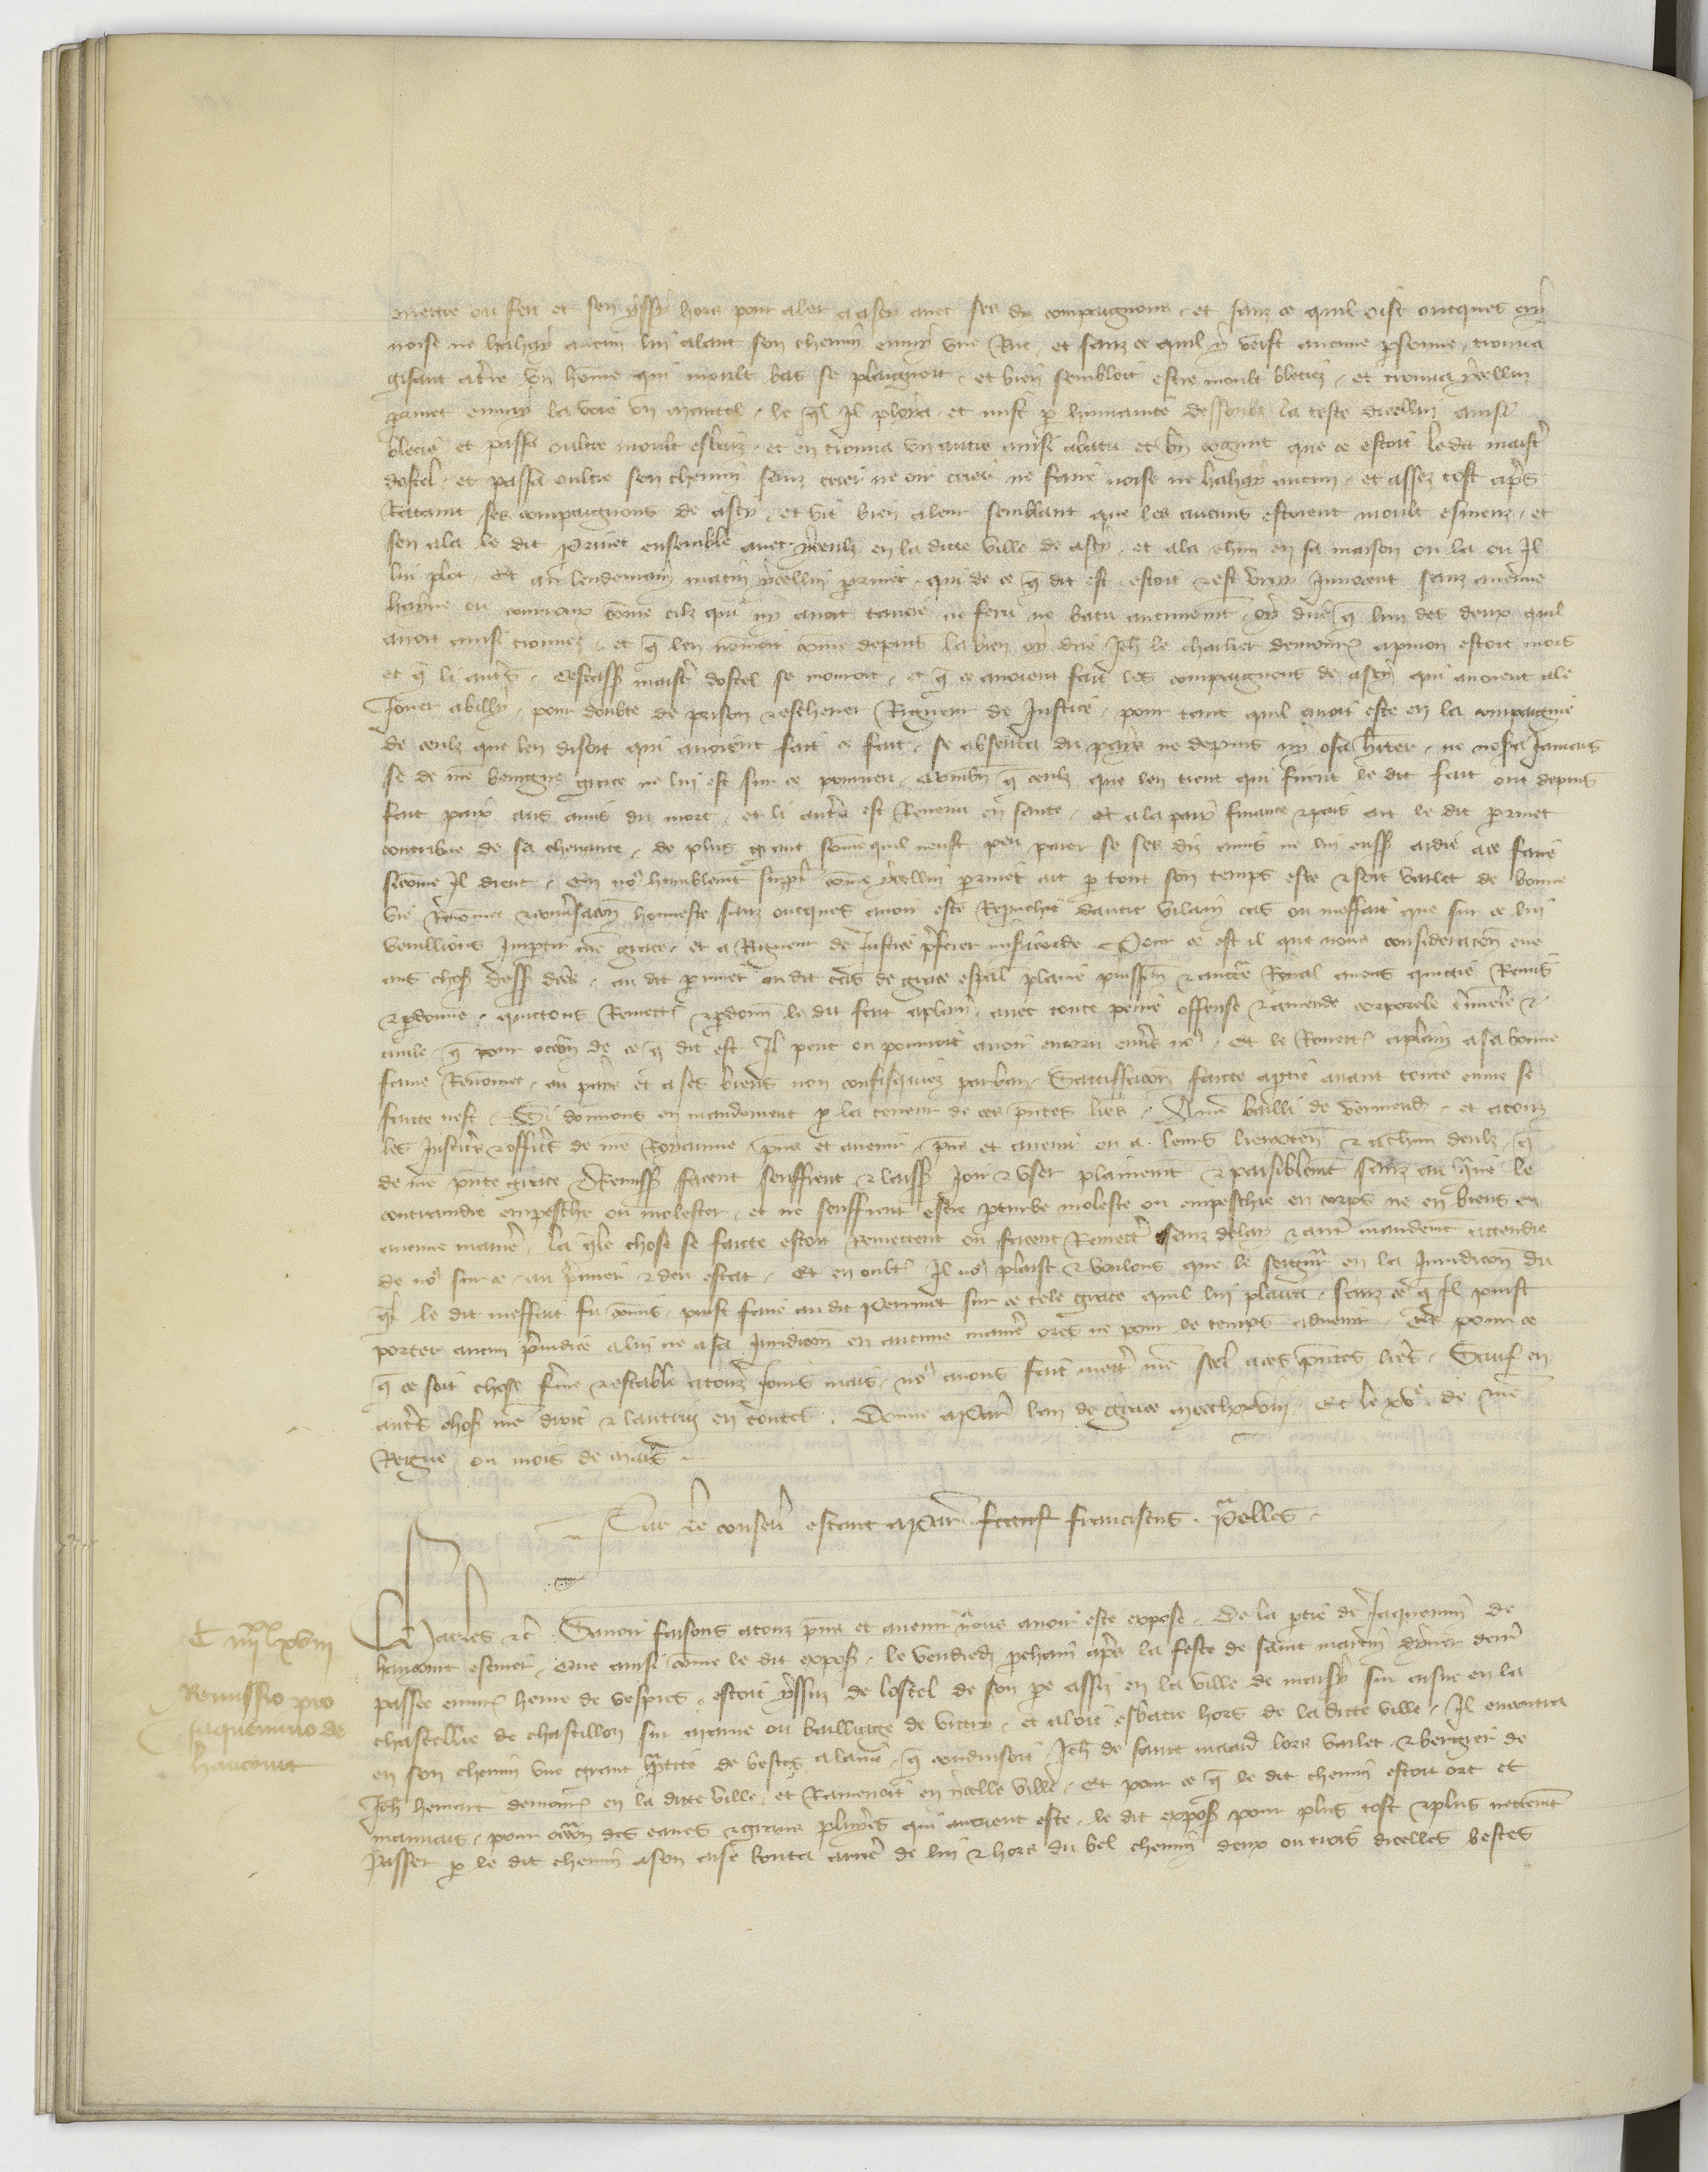 mettre ou feu et sen yssy hors pour aler a asy avec ses diz compaignons, et sanz ce quil oist oncques cry
noise ne hahay aucun lui alant son chemin enmy une Rue, et sanz ce quil y veist aucune psonne, trouva
gisant a tre un home qui moult bas se plaignoit, et bien sembloit estre moult bleciez, et trouva ycellui
prinet enmy la voie un mantel, le ql Il ploya et mist p humanite dessoubz la teste dicellui ainsi
blecie et passa oultre moult esbaiz, et en trouva un autre ainsi abatu et bn cognut que ce estoit ledit maistr
dostel, et passa oultre son chemin sanz crier ne oir crier ne faire noise ne hahay aucun, et assez tost apres
Rataint ses compaignons de asy, et vit bien a leur semblant que les aucuns estoient moult esmeuz, et
sen ala le dit prinet ensemble avec yceulz en la dicte ville de asy, et ala chun en sa maison ou la ou Il
lui plot, Et au lendemain matin ycellui prinet qui de ce q dit est estoit & est vray Innocent sanz aucune
hayne ou courroux come cilz qui ny avoit touchie ne feru ne batu aucunemt, oy dire q lun des deux quil
avoit ainsi trouvez, et q len nomoit come depuis la bien oy dire Jeh le charlier demour a pinon estoit mors
et q li autres, maistre dostel se mouroit, et q ce avoient fait les compaignons de asy qui avoient ale
Jouer a billy, pour doubte de prison & eschever Rigueur de Justice, pour tant quil avoit este en la compaignie
de ceulz que len disoit qui avoient fait ce fait, se absenta du pays ne depuis ny osa hiter, ne noseroit Jamais
se de nre benigne grace ne lui est sur ce pourveu, Combn q ceulz que len tient qui firent le dit fait ont depuis
fait paix aus amis du mort, et li autre est Revenu en sante, Et a la paix finance & pais ait le dit prinet
contribue de sa chevance, de plus grant some quil neust peu paier se ses diz amis ne lui eussent aidie a ce faire
sicome Il dient, En nos humblemt suppl come ycellui prinet ait p tout son temps este & soit varlet de bonne
vie Renomee & conversacon honneste sanz oncques avoir este Reprouchie dautre vilain cas ou meffait que sur ce lui
veuillions Impartir nre grace, et a Rigueur de Justice pferer misericorde, Pour ce est il que nous consideracon eue
aus choses dessus dictes, au dit prinet ou dit cas de grace espal plaine puissance & auctorite Royal avons quictie Remis
& pdonne, quictons Remett & pdonn le dit fait a plain, avec toute peine offense & amende corporele criminele &
civile, q pour occon de ce q dit est Il peut ou pourroit avoir encouru envers nos, Et le Remett a plain a sa bonne
fame Renomee, au pays et a ses biens non confisquiez par ban, Satisfaccon faicte a ptie avant toute euvre se
faicte nest, Si donnons en mandement p la teneur de ces pntes lres, A nre bailli de vermend et a touz
les Justiciers & officiers de nre Royaume pns et avenir, pns et avenir ou a leurs lieuxten & a chun deulz, q
de nre pnte grace & Remiss facent seuffrent & laiss Joir & user plainemt & paisiblemt sanz au contraire le
contraindre empeschier ou molester, et ne seuffrent estre ptourbe moleste ou empeschie en corps ne en biens en
aucune maniere, la qle chose se faicte estoit Remettent ou facent Remettre sanz delay & autre mandemt attendre
de nos sur ce, au premier & deu estat, Et en oultre Il nos plaist & voulons que le seigneur en la Jurediccon du
ql le dit meffait fu comis, puist faire au dit prinet sur ce tele grace quil lui plaira, sanz ce q Il puist
porter aucun prejudice a lui ne a sa Juridiccon en aucune maniere ores ne pour le temps advenir, Et pour ce
q ce soit chose ferme & estable a touz Jours mais, nos avons fait mettre nre seel a ces pntes lres, Sauf en
autres choses nre droit & lautrui en toutes, Donne a Paris lan de grace mccclxxviii Et le xve de nre
Regne ou mois de mars
Par le conseil estant a Paris francf franciscus. Praelles
Charles etc Savoir faisons a touz pns et avenir Nous avoir este expose, De la ptie de Jaquemin de
haucourt escuier, Que ainsi come le dit expos, le vendredi prochain apres la feste de saint martin dyver derr
passee environ heure de vespres, estoit yssuz de lostel de son pe assiz en la ville de maisy sur aisne en la
chastellie de chastillon sur marne ou bailliage de vitry, et aloit esbatre hors de la dicte ville, Il encontra
en son chemin une grant quantite de bestes a laine, q conduisoit Jeh de saint maard lors varlet & bergier de
Jeh hemart demour en la dicte ville, et Ramenoit en ycelle ville, Et pour ce q le dit chemin estoit ort et
mauvais, pour occasion des eaues & grans pluyes qui avoient este, le dit expos pour plus tost & plus nettemt
Passer p le dit chemin a son aise bouta arrier de lui & hors du bel chemin deux ou trois dicelles bestes
C iiiixx lxviii
Remissio pro
Jaquemino de
haucourt